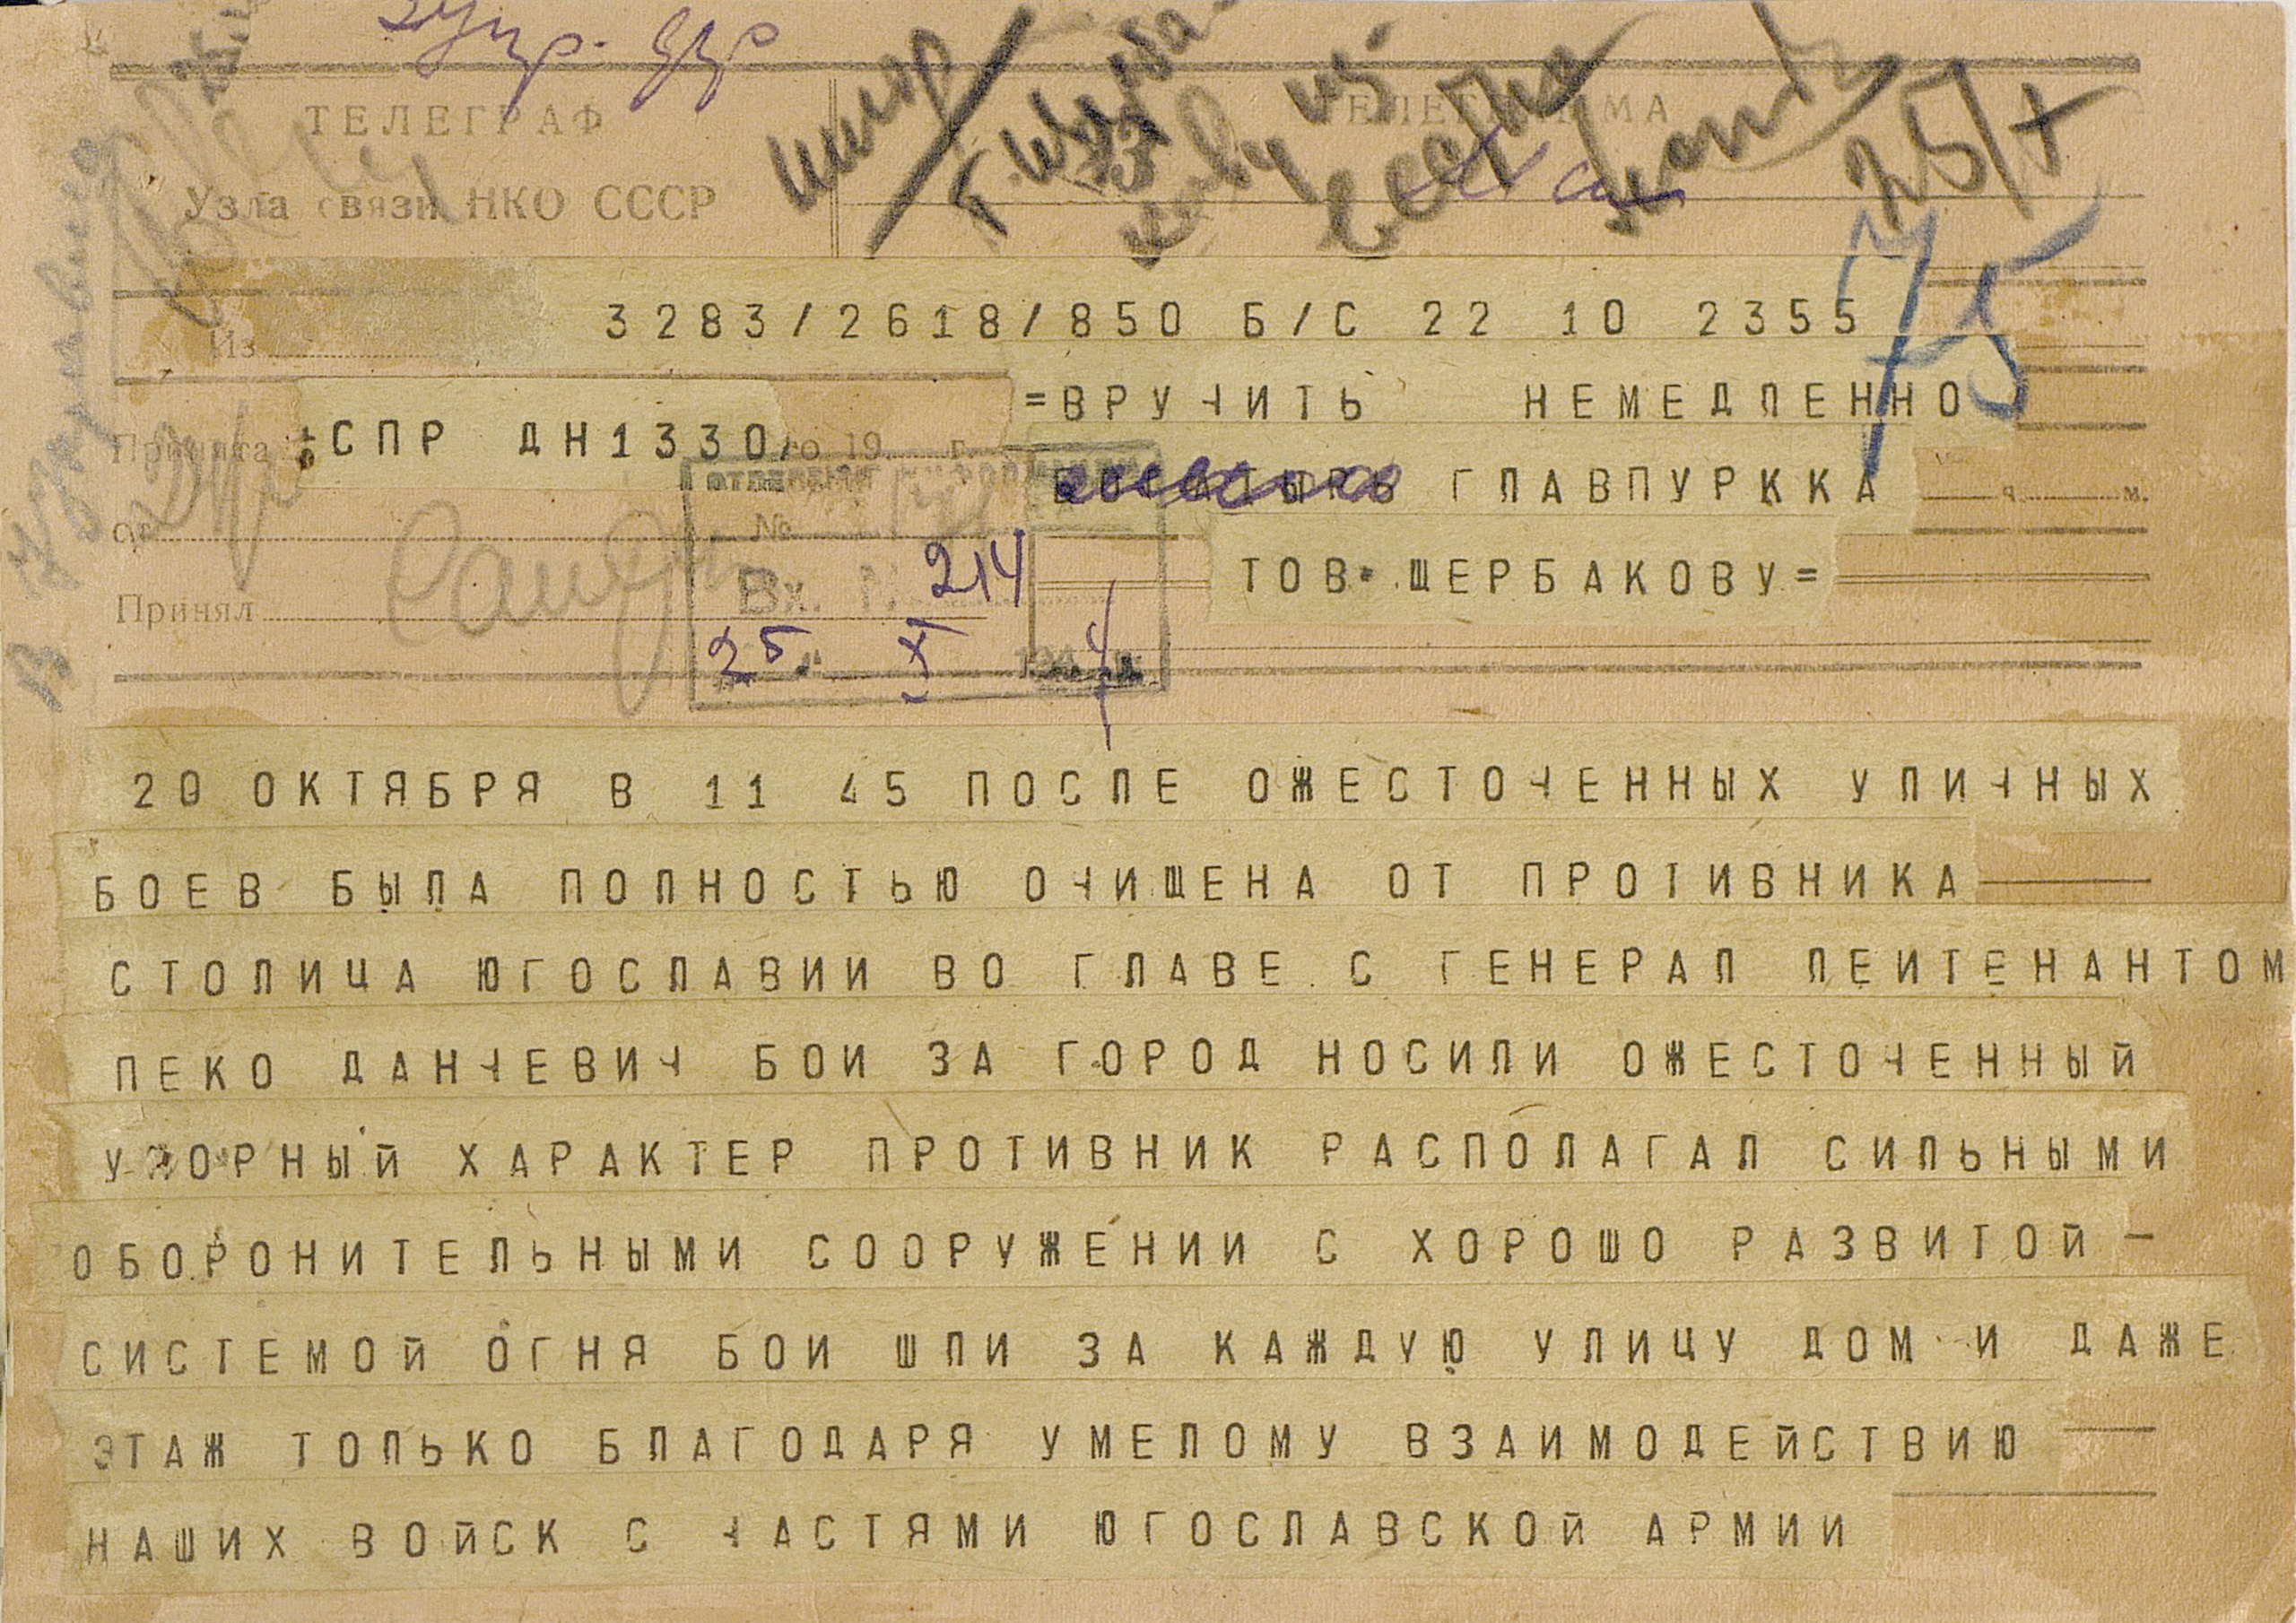 ТЕЛЕГРАФ
Узла связи НКО СССР
3283/2618/850 Б/С 22 10 2355
75
25/X
Из
=ВРУЧИТЬ НЕМЕДЛЕННО
Принята
СПР ДН1330/
го 19 г.
ГЛАВПУРККА
ч. м.
от
№
ТОВ. ЩЕРБАКОВУ=
Вх. № 214
Принял
25. X 1944
20 ОКТЯБРЯ В 11 45 ПОСЛЕ ОЖЕСТОЧЕННЫХ УЛИЧНЫХ
БОЕВ БЫЛА ПОЛНОСТЬЮ ОЧИЩЕНА ОТ ПРОТИВНИКА
СТОЛИЦА ЮГОСЛАВИИ ВО ГЛАВЕ С ГЕНЕРАЛ ЛЕИТЕНАНТОМ
ПЕКО ДАНЧЕВИЧ БОИ ЗА ГОРОД НОСИЛИ ОЖЕСТОЧЕННЫЙ
УПОРНЫЙ ХАРАКТЕР ПРОТИВНИК РАСПОЛАГАЛ СИЛЬНЫМИ
ОБОРОНИТЕЛЬНЫМИ СООРУЖЕНИИ С ХОРОШО РАЗВИТОЙ –
СИСТЕМОЙ ОГНЯ БОИ ШЛИ ЗА КАЖДУЮ УЛИЦУ ДОМ И ДАЖЕ
ЭТАЖ ТОЛЬКО БЛАГОДАРЯ УМЕЛОМУ ВЗАИМОДЕЙСТВИЮ
НАШИХ ВОЙСК С ЧАСТЯМИ ЮГОСЛАВСКОЙ АРМИИ